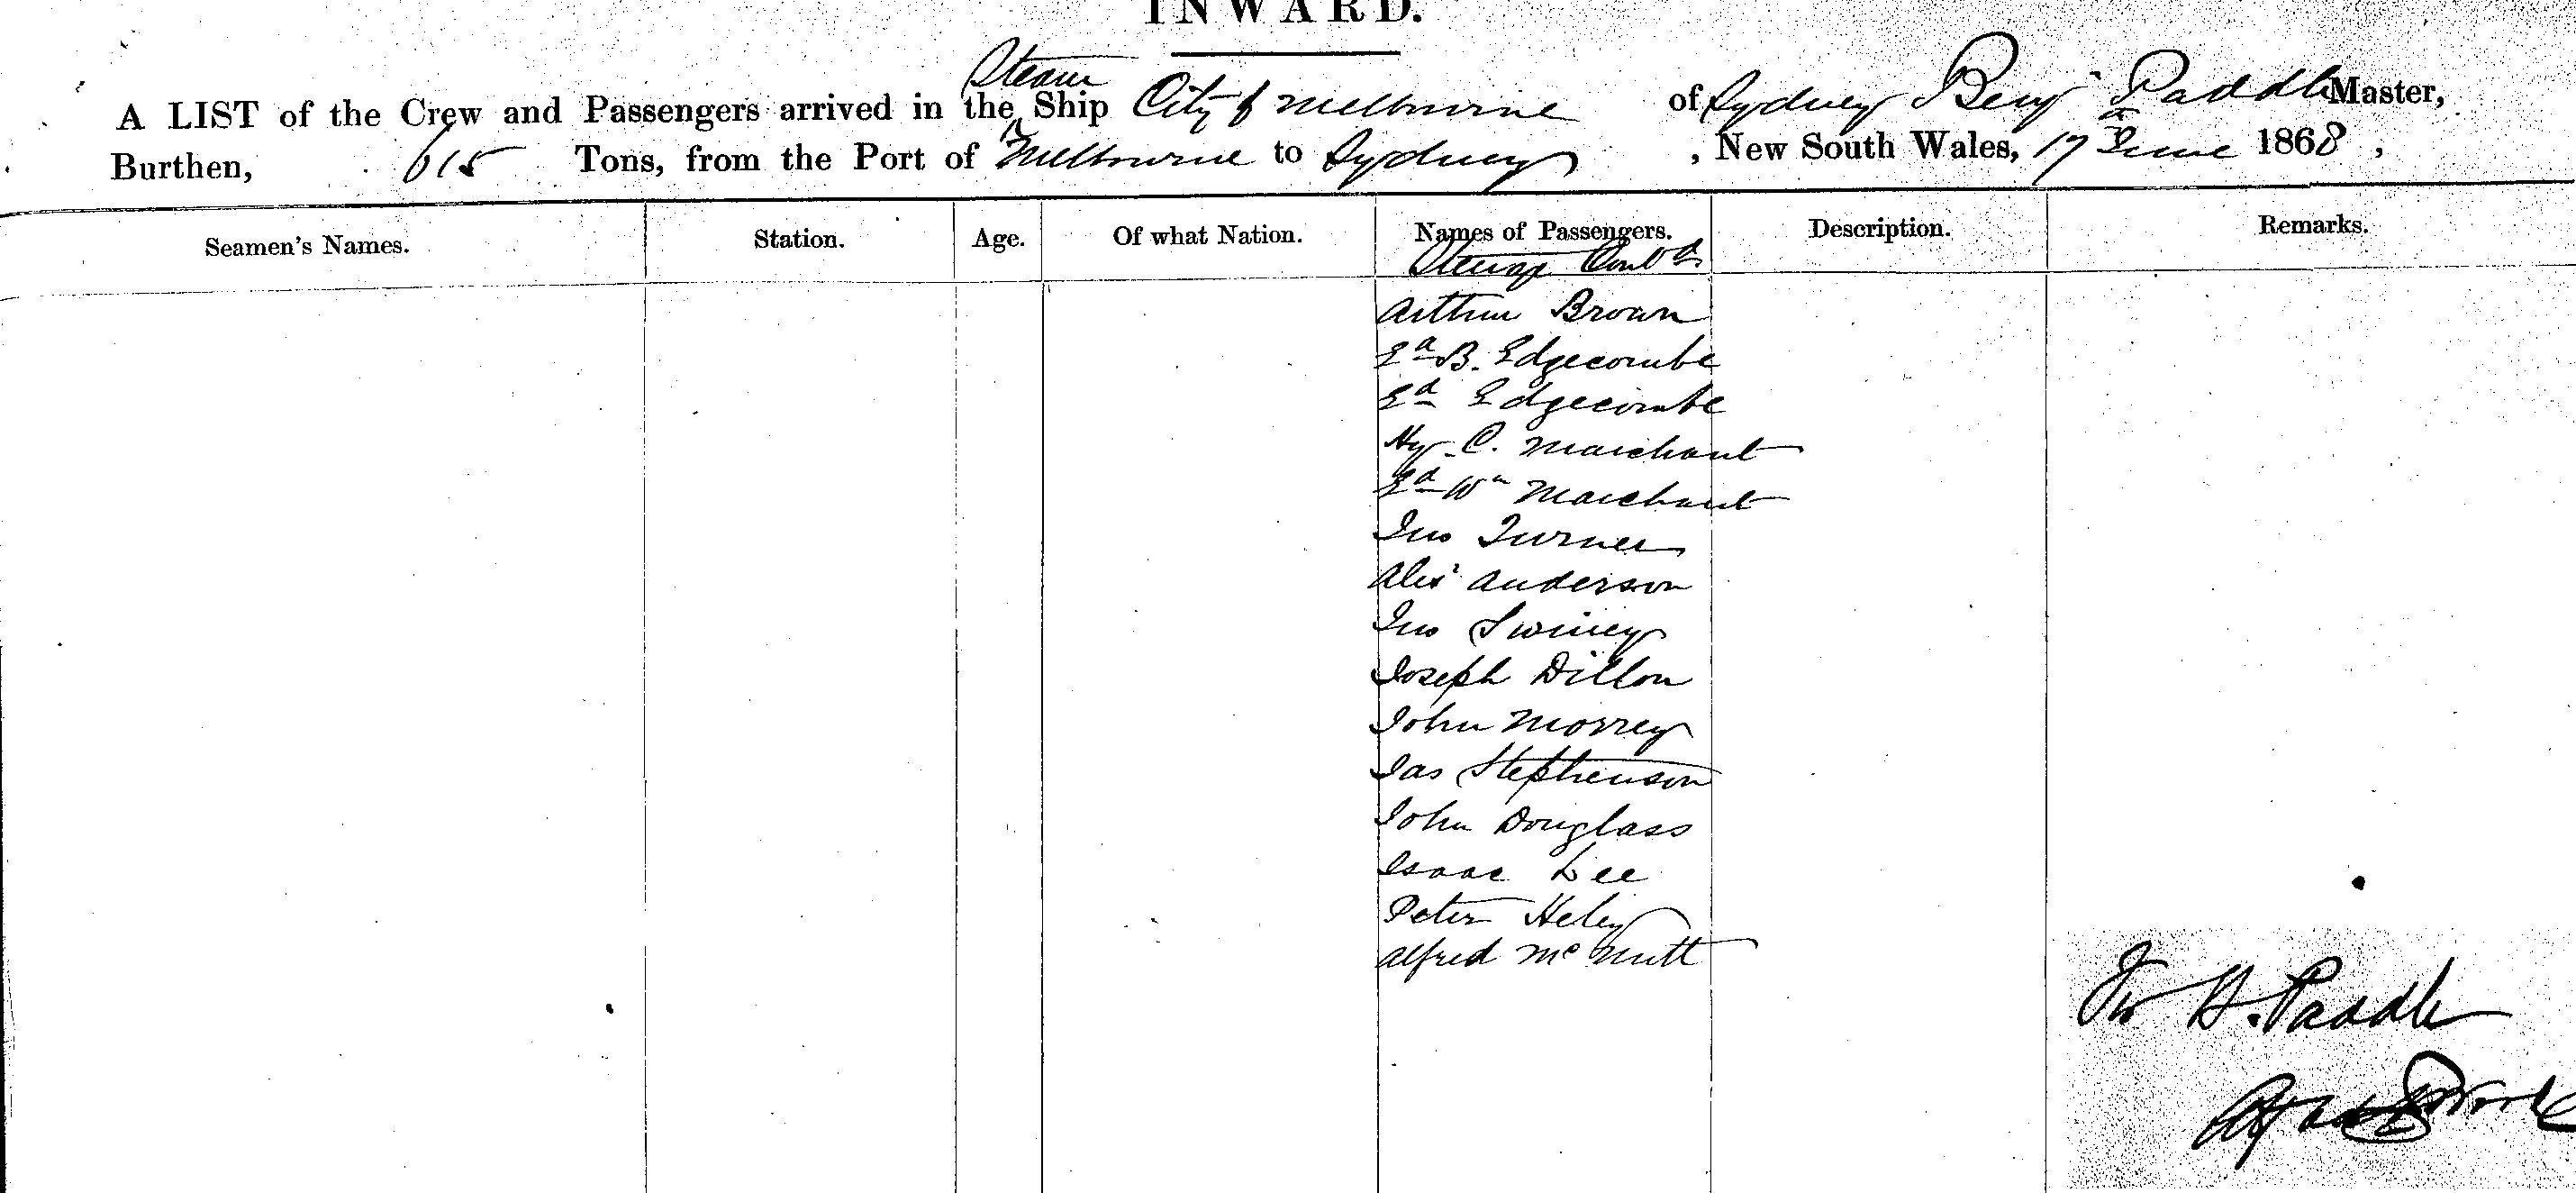 INWARD.
Steam
A LIST of the Crew and Passengers arrived in the ^ Ship City of Melbourne of Sydney Benj Paddle Master,
Burthen, 615 Tons, from the Port of Melbourne to Sydney , New South Wales, 17 June 1868 ,
Seamen's Names. Station. Age. Of what Nation. Names of Passengers. Description. Remarks.
Steerage Contd
Arthur Brown
Ed B. Edgecombe
Ed Edgecombe
Hy C. Marchant
Ed Wm Marchant
Jno Turner
Alexr Anderson
Jno Swiney
Joseph Dillon
John Morrey
Jas Stephenson
John Douglass
Isaac Lee
Peter Heley
Alfred McNutt
Paddle